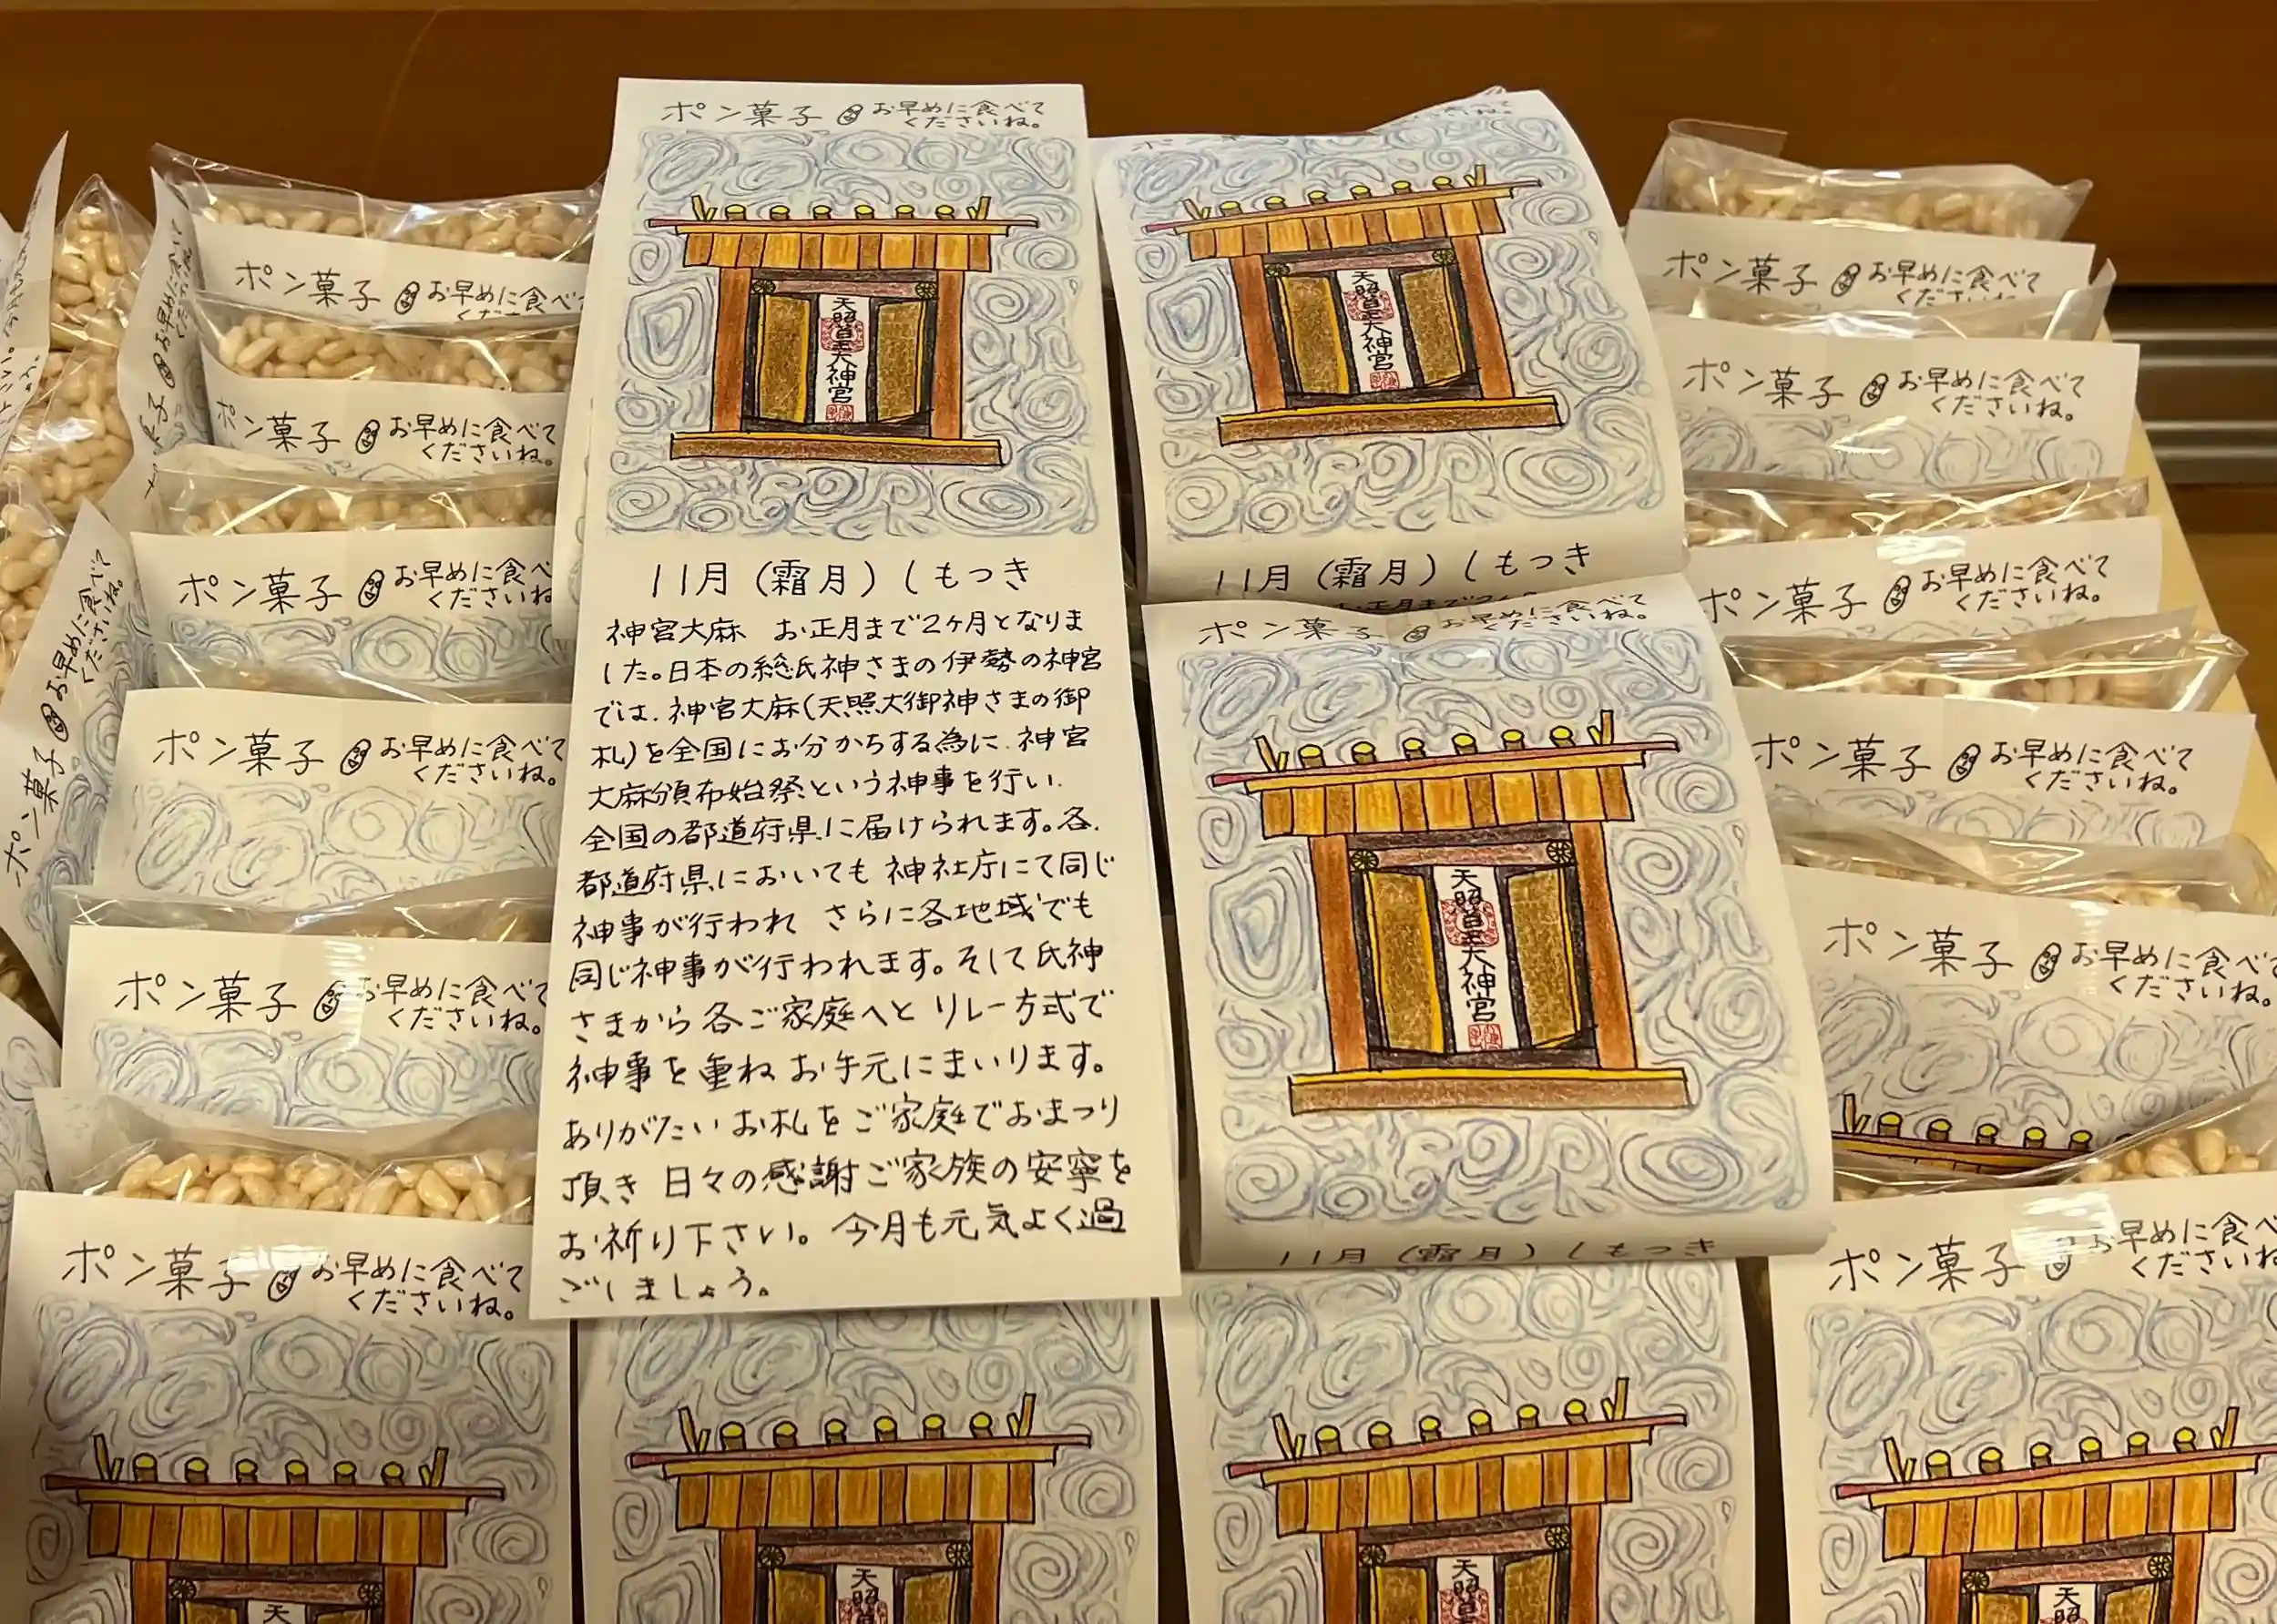 ポン菓子 お早めに食べて
くださいね。
天照皇大神宮
11月（霜月）しもつき
神宮大麻 お正月まで2ヶ月となりま
した。日本の総氏神さまの伊勢の神宮
では、神宮大麻（天照大御神さまの御
札）を全国にお分かちする為に、神宮
大麻頒布始祭という神事を行い、
全国の都道府県に届けられます。各
都道府県においても 神社庁にて同じ
神事が行われ さらに各地域でも
同じ神事が行われます。そして氏神
さまから各ご家庭へと リレー方式で
神事を重ね お手元にまいります。
ありがたいお札をご家庭でおまつり
頂き 日々の感謝ご家族の安寧を
お祈り下さい。今月も元気よく過
ごしましょう。
11月（霜月）しもつき
天照皇大神宮
ポン菓子 お早めに食べて
くださいね。
天照皇大神宮
11月（霜月）しもつき
ポン菓子 お早めに食べて
ポン菓子 お早めに食べて
くださいね。
ポン菓子 お早めに食べ
くださいね
ポン菓子 お早めに食べて
くださいね。
ポン菓子 お早めに食べて
くださいね。
ポン菓子 お早めに食べて
くださいね。
ポン菓子 お早めに食べて
くださいね。
ポン菓子 お早めに食べて
ポン菓子 お早めに食べて
くださいね。
ポン菓子 お早めに食べて
くださいね。
ポン菓子 お早めに食べて
くださいね。
ポン菓子 お早めに食べて
くださいね。
ポン菓子 お早めに食べ
くださいね
天
天照
天照
天照